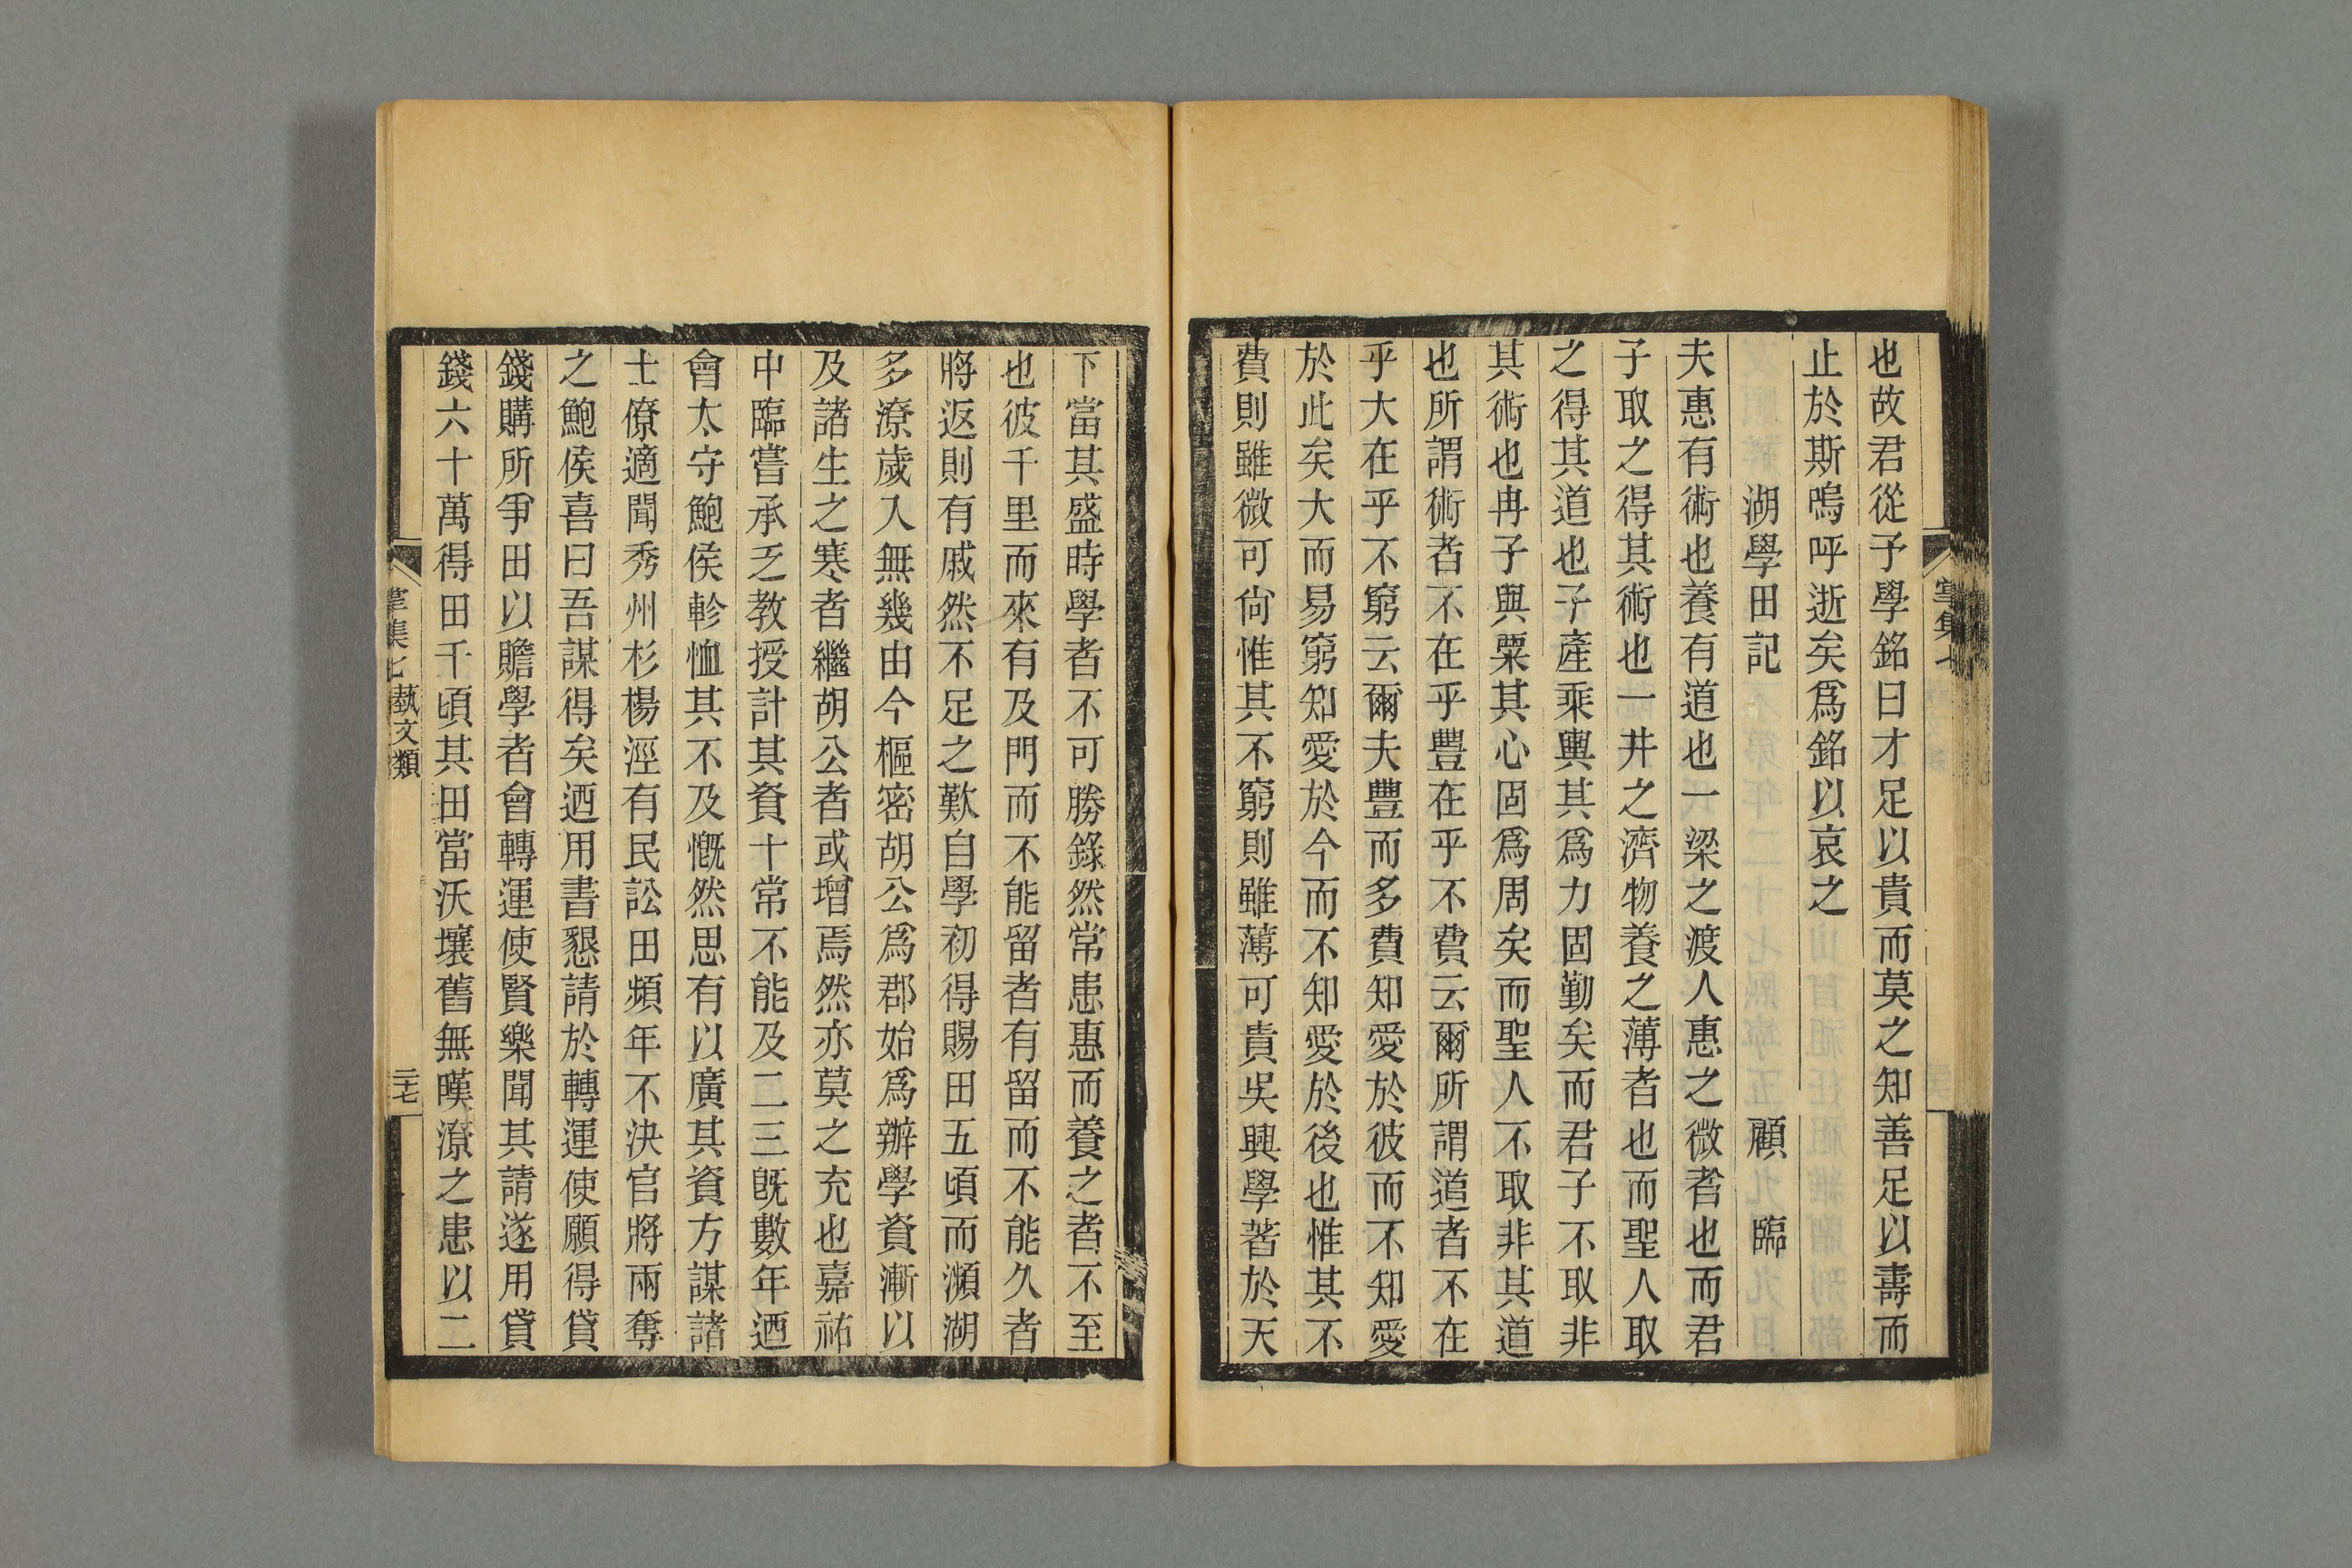 也故君從予學銘曰才足以貴而莫之知善足以壽而
止於斯嗚呼逝矣爲銘以哀之
湖學田記 顧臨
夫惠有術也養有道也一梁之渡人惠之微者也而君
子取之得其術也一井之濟物養之薄者也而聖人取
之得其道也子產乘輿其爲力固勤矣而君子不取非
其術也冉子與粟其心固爲周矣而聖人不取非其道
也所謂術者不在乎豐在乎不費云爾所謂道者不在
乎大在乎不窮云爾夫豐而多費知愛於彼而不知愛
於此矣大而易窮知愛於今而不知愛於後也惟其不
費則雖微可尙惟其不窮則雖薄可貴吳興學著於天
下當其盛時學者不可勝錄然常患惠而養之者不至
也彼千里而來有及門而不能留者有留而不能久者
將返則有戚然不足之歎自學初得賜田五頃而瀕湖
多潦歲入無幾由今樞密胡公爲郡始爲辦學資漸以
及諸生之寒者繼胡公者或增焉然亦莫之充也嘉祐
中臨嘗承乏教授計其資十常不能及二三旣數年迺
會太守鮑侯軫恤其不及慨然思有以廣其資方謀諸
士僚適聞秀州杉楊涇有民訟田頻年不決官將兩奪
之鮑侯喜曰吾謀得矣迺用書懇請於轉運使願得貸
錢購所爭田以贍學者會轉運使賢樂聞其請遂用貸
錢六十萬得田千頃其田當沃壤舊無暵潦之患以二
掌集七 藝文類 二十七